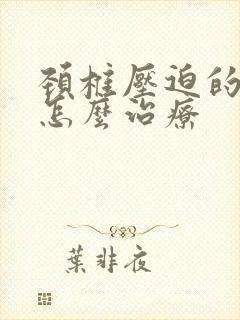 頸椎壓迫的
怎麼治療
葉非夜